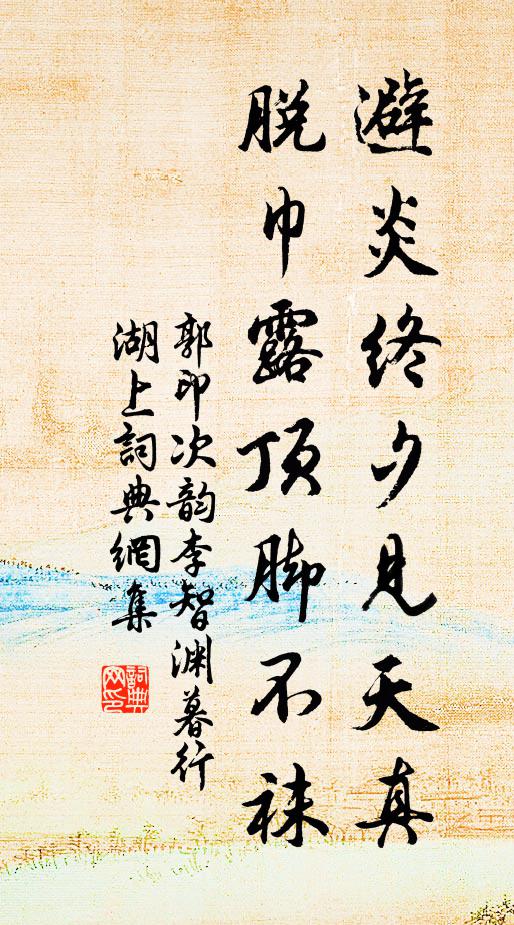 避炎终夕見天真
脱巾露頂脚不袜
郭印次韵李智渊暮行
湖上詞典網集
詞典网印